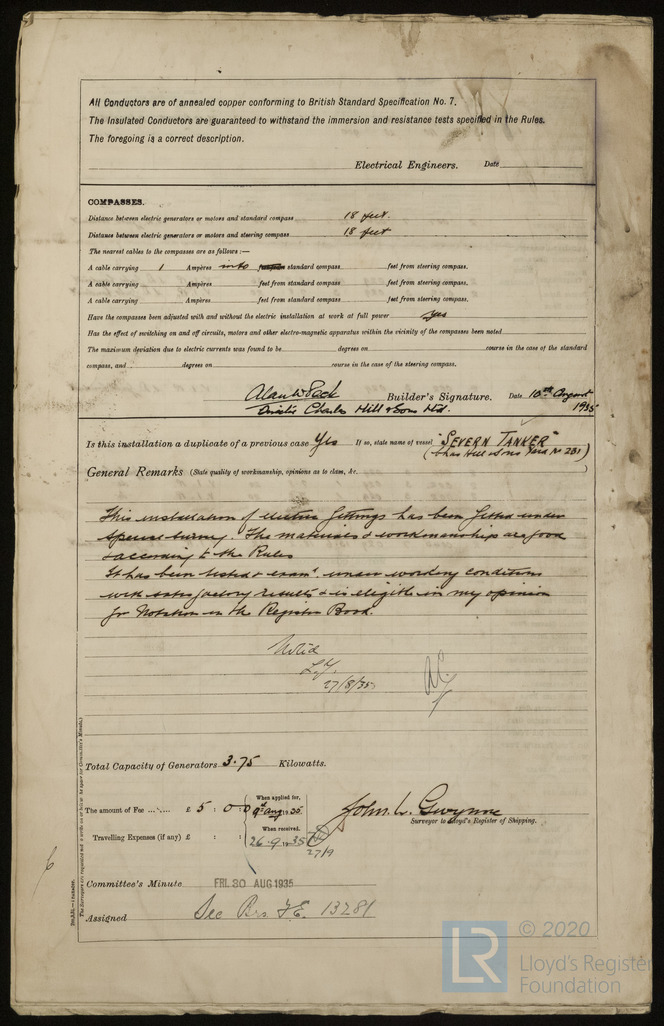 All Conductors are of annealed copper conforming to British Standard Specification No. 7.
The Insulated Conductors are guaranteed to withstand the immersion and resistance tests specified in the Rules.
The foregoing is a correct description.
Electrical Engineers. Date
COMPASSES.
Distance between electric generators or motors and standard compass 18 feet.
Distance between electric generators or motors and steering compass 18 feet
The nearest cables to the compasses are as follows:—
A cable carrying 1 Ampères into standard compass feet from steering compass.
A cable carrying Ampères feet from standard compass feet from steering compass.
A cable carrying Ampères feet from standard compass feet from steering compass.
Have the compasses been adjusted with and without the electric installation at work at full power Yes
Has the effect of switching on and off circuits, motors and other electro-magnetic apparatus within the vicinity of the compasses been noted
The maximum deviation due to electric currents was found to be degrees on course in the case of the standard
compass, and degrees on course in the case of the steering compass.
Builder's Signature. Date 10th August
Charles Hill & Sons Ltd. 1935
Is this installation a duplicate of a previous case Yes If so, state name of vessel "SEVERN TANKER"
(Chas Hill & Sons Yard No 231)
General Remarks (State quality of workmanship, opinions as to class, &c.
This installation of electric fittings has been fitted under
special survey. The materials & workmanship are good
& according to the Rules
It has been tested & examd. under working conditions
with satisfactory results & is eligible in my opinion
for Notation in the Register Book.
Noted
27/8/35
Total Capacity of Generators 3.75 Kilowatts.
When applied for,
The amount of Fee ... £ 5 : 0 : 0 9th Aug 1935
John. L. Gwynne
Surveyor to Lloyd's Register of Shipping.
When received.
Travelling Expenses (if any) £ : : 26.9.1935
27/9
Committee's Minute FRI. 30 AUG 1935
Assigned See Brs. F.E. 13281
© 2020
LR
Lloyd's Register
Foundation